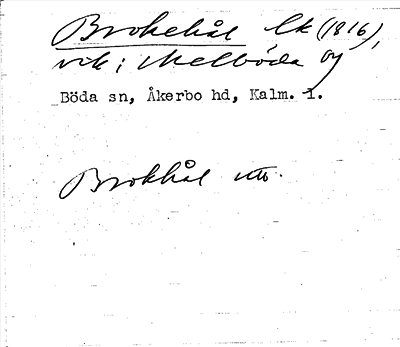 Brokehål lk (1816),
vik i Melböda by
Böda sn, Åkerbo hd, Kalm. l.
Brokhål utt.